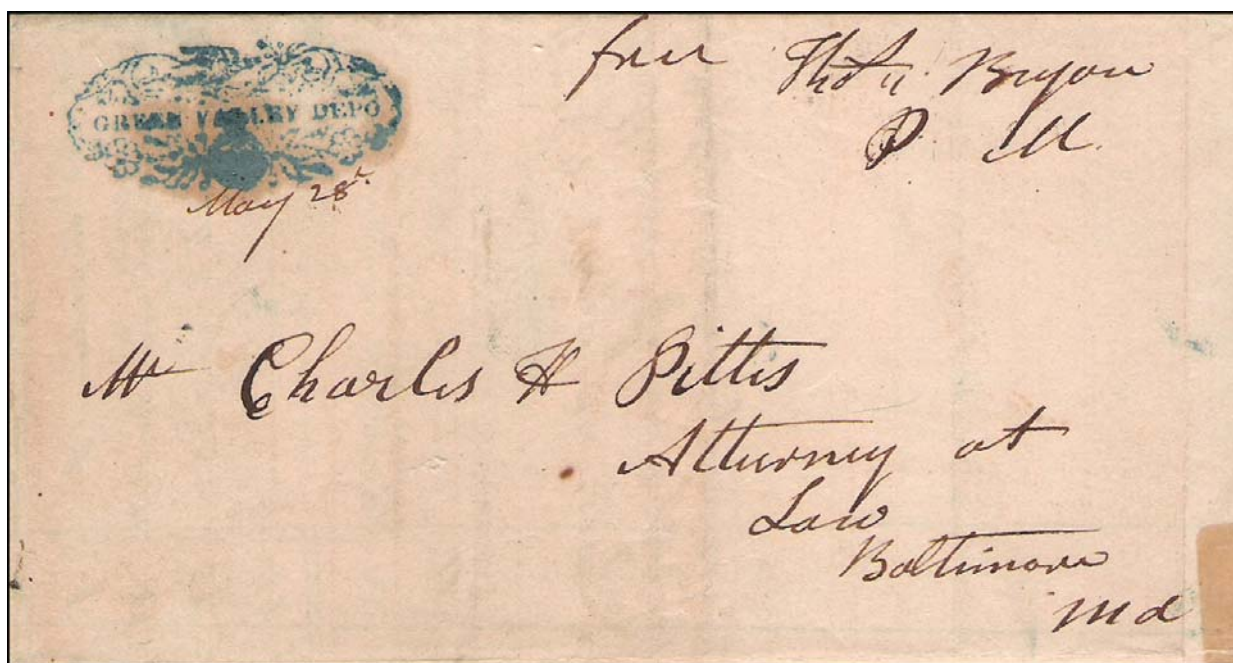 GREEN VALLEY DEPO
May 28
free Bryan
P M
Mr Charles H Pittis
Atturney at
Law
Baltimore
Md